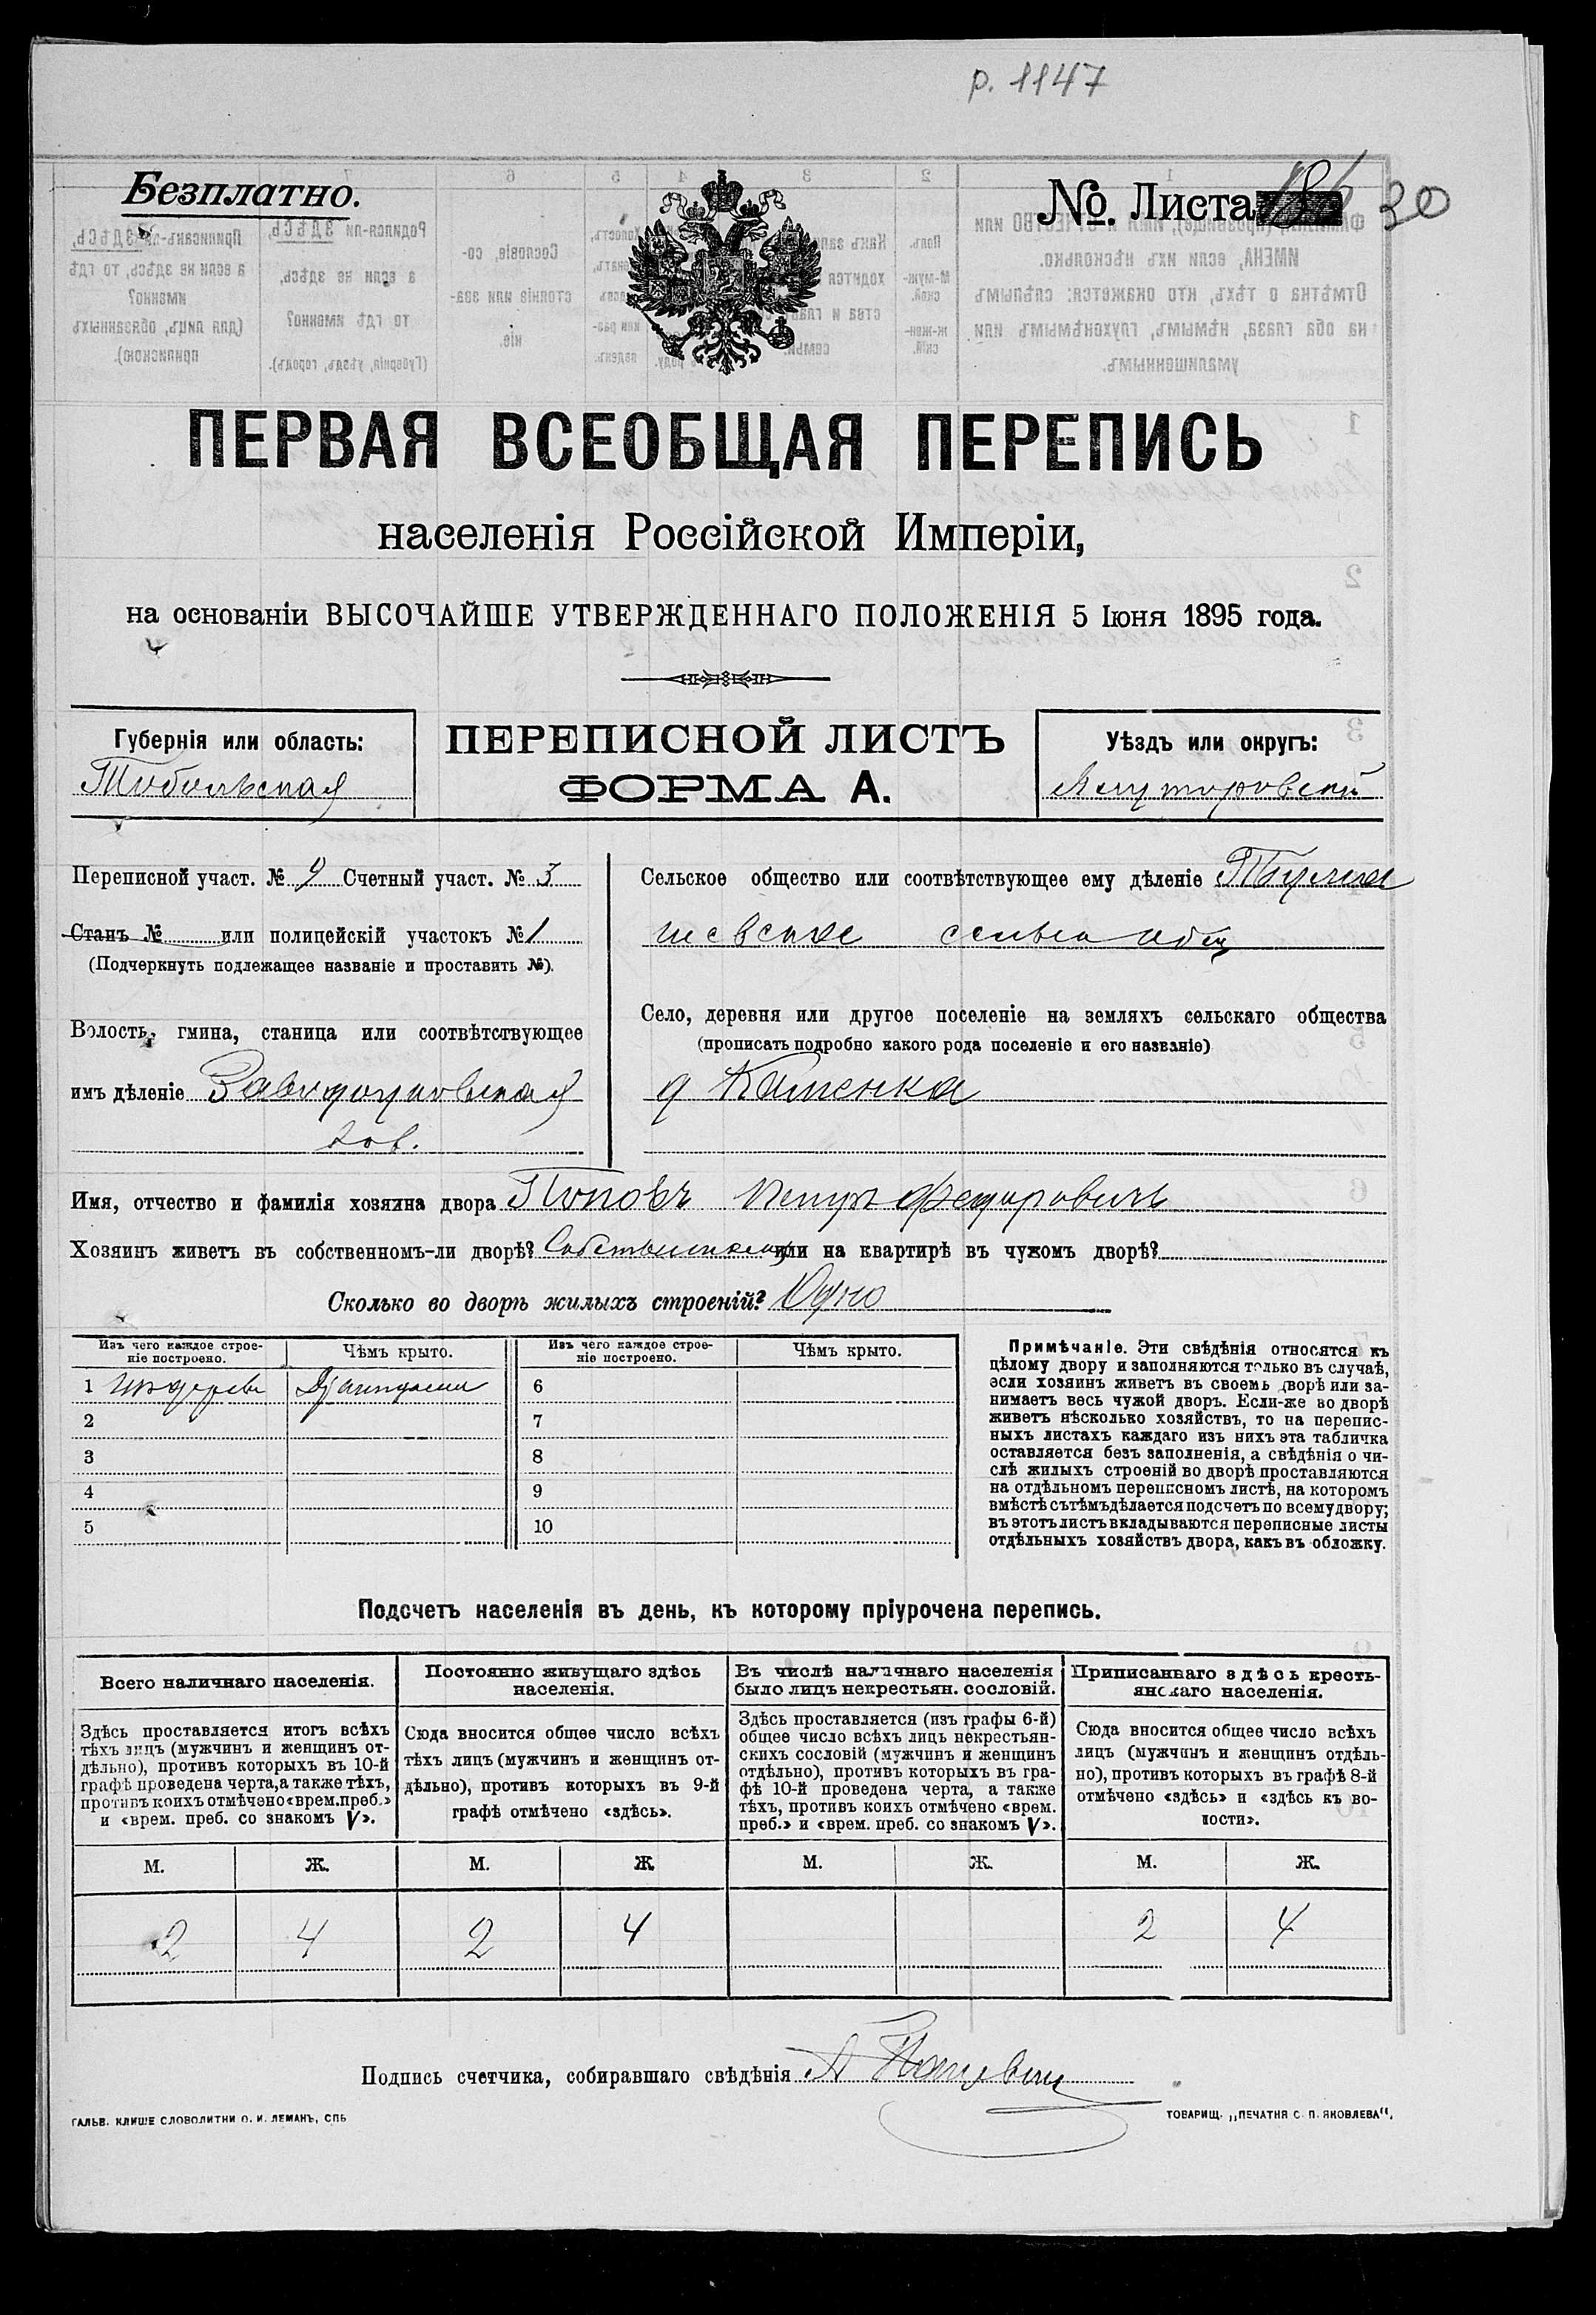 р. 1147
Безплатно.
№. Листа 30
ПЕРВАЯ ВСЕОБЩАЯ ПЕРЕПИСЬ
населенія Россійской Имперіи,
на основаніи ВЫСОЧАЙШЕ УТВЕРЖДЕННАГО ПОЛОЖЕНІЯ 5 Іюня 1895 года.
Губернія или область:
Тобольская
ПЕРЕПИСНОЙ ЛИСТЪ
ФОРМА А.
Уѣздъ или округъ:
Ялуторовскій
Переписной участ. № 9 Счетный участ. № 3
Станъ № или полицейскій участокъ № 1
(Подчеркнуть подлежащее названіе и проставить №).
Волость, гмина, станица или соотвѣтствующее
имъ дѣленіе Заводоуковская
Сельское общество или соотвѣтствующее ему дѣленіе
Село, деревня или другое поселеніе на земляхъ сельскаго общества
(прописать подробно какого рода поселеніе и его названіе)
д Каменка
Имя, отчество и фамилія хозяина двора Поповъ Петръ Федоровичъ
Хозяинъ живетъ въ собственномъ-ли дворѣ? или на квартирѣ въ чужомъ дворѣ?
Сколько во дворѣ жилыхъ строеній? Одно
Изъ чего каждое строе-
ніе построено.
Чѣмъ крыто.
Изъ чего каждое строе-
ніе построено.
Чѣмъ крыто.
1 6
2 7
3 8
4 9
5 10
Примѣчаніе. Эти свѣдѣнія относятся къ
цѣлому двору и заполняются только въ случаѣ,
если хозяинъ живетъ въ своемъ дворѣ или за-
нимаетъ весь чужой дворъ. Если-же во дворѣ
живетъ нѣсколько хозяйствъ, то на перепис-
ныхъ листахъ каждаго изъ нихъ эта табличка
оставляется безъ заполненія, а свѣдѣнія о чи-
слѣ жилыхъ строеній во дворѣ проставляются
на отдѣльномъ переписномъ листѣ, на которомъ
вмѣстѣ съ тѣмъ дѣлается подсчетъ по всему двору;
въ этотъ листъ вкладываются переписные листы
отдѣльныхъ хозяйствъ двора, какъ въ обложку.
Подсчетъ населенія въ день, къ которому пріурочена перепись.
Всего наличнаго населенія.
Здѣсь проставляется итогъ всѣхъ
тѣхъ лицъ (мужчинъ и женщинъ от-
дѣльно), противъ которыхъ въ 10-й
графѣ проведена черта, а также тѣхъ,
противъ коихъ отмѣчено «врем. преб.»
и «врем. преб. со знакомъ V».
Постоянно живущаго здѣсь
населенія.
Сюда вносится общее число всѣхъ
тѣхъ лицъ (мужчинъ и женщинъ от-
дѣльно), противъ которыхъ въ 9-й
графѣ отмѣчено «здѣсь».
Въ числѣ наличнаго населенія
было лицъ некрестьян. сословій.
Здѣсь проставляется (изъ графы 6-й)
общее число всѣхъ лицъ некрестьян-
скихъ сословій (мужчинъ и женщинъ
отдѣльно), противъ которыхъ въ гра-
фѣ 10-й проведена черта, а также
тѣхъ, противъ коихъ отмѣчено «врем.
преб.» и «врем. преб. со знакомъ V».
Приписаннаго здѣсь кресть-
янскаго населенія.
Сюда вносится общее число всѣхъ
лицъ (мужчинъ и женщинъ отдѣль-
но), противъ которыхъ въ графѣ 8-й
отмѣчено «здѣсь» и «здѣсь къ во-
лости».
М. Ж. М. Ж. М. Ж. М. Ж.
2 4 2 4 2 4
Подпись счетчика, собиравшаго свѣдѣнія
ГАЛЬВ. КЛИШЕ СЛОВОЛИТНИ О. И. ЛЕМАНЪ, СПБ
ТОВАРИЩ. „ПЕЧАТНЯ С. П. ЯКОВЛЕВА“.